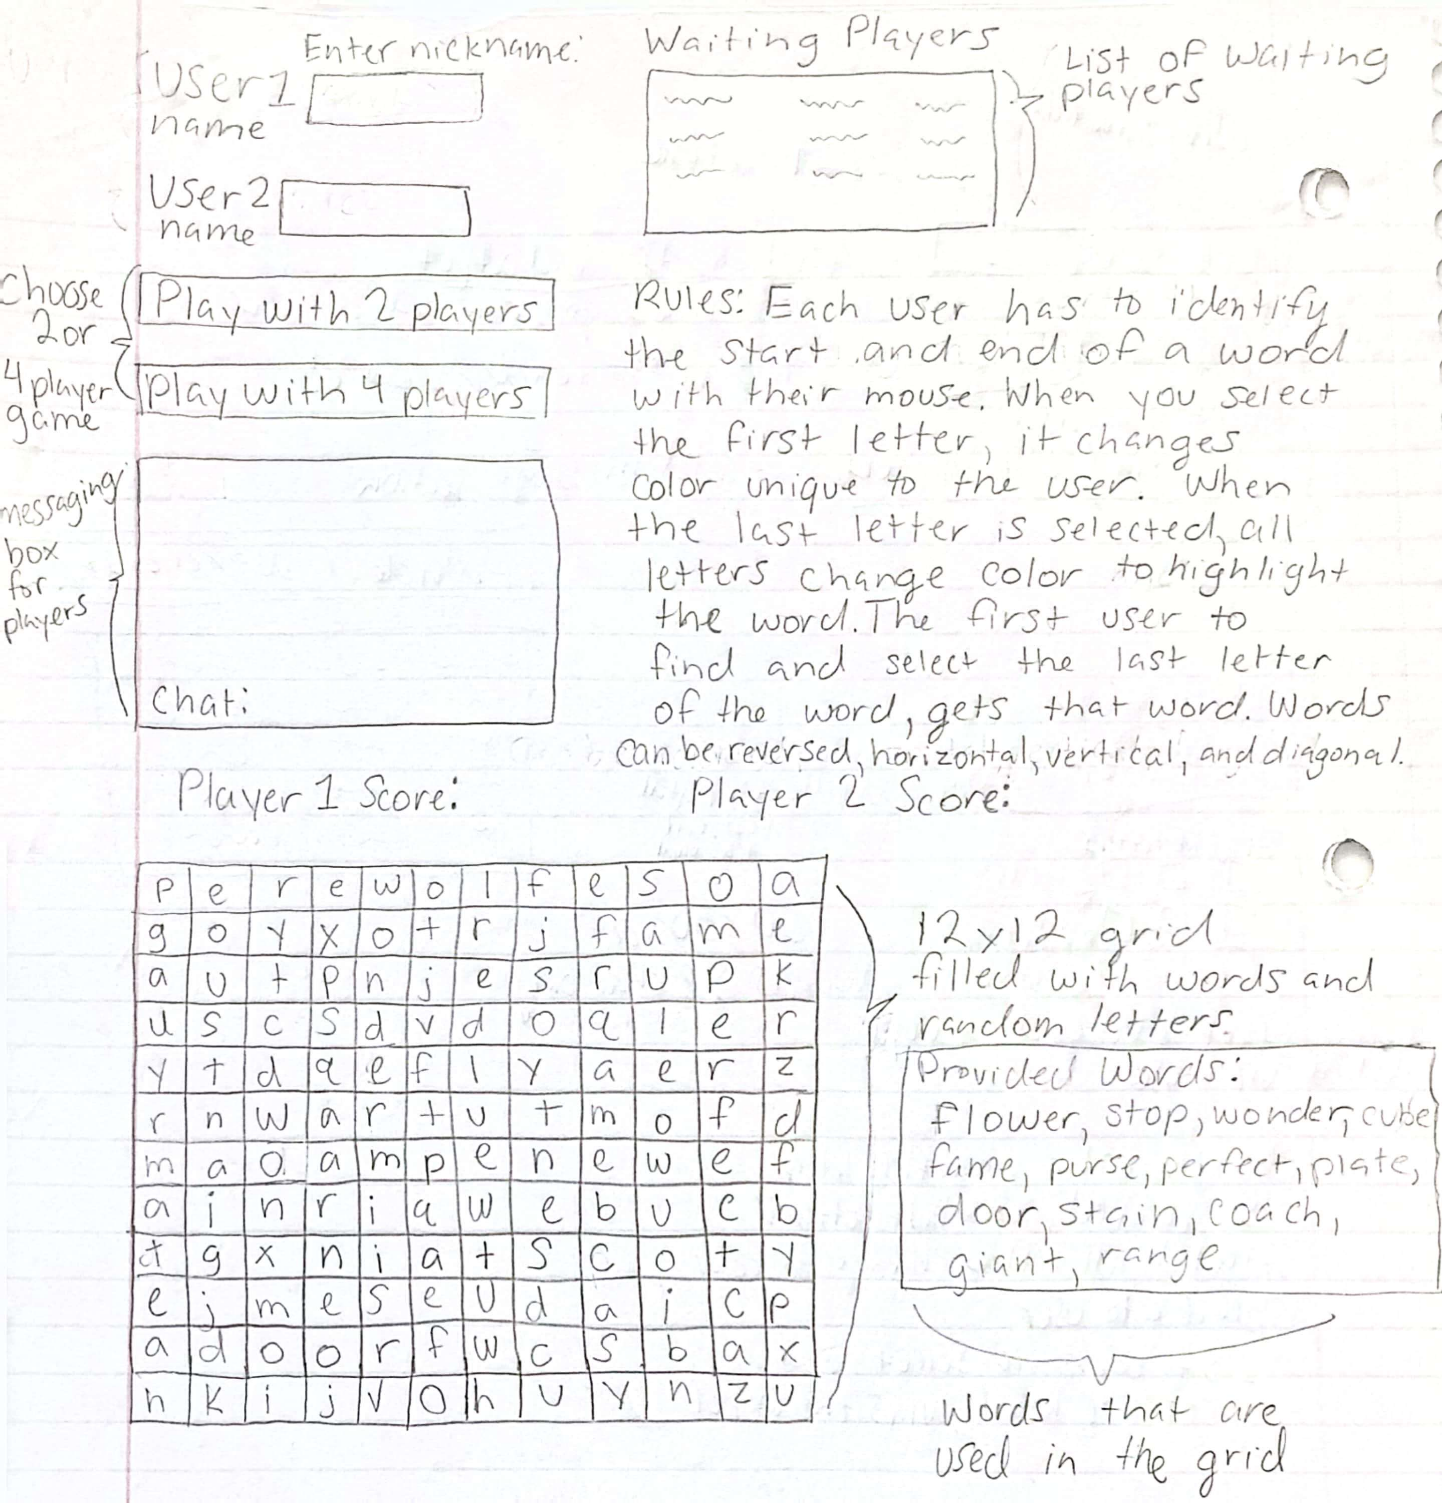 Enter nickname:
User 1
name
User 2
name
Waiting Players
List of waiting
players
Choose
2 or
4 player
game
Play with 2 players
Play with 4 players
messaging
box
for
players
Chat:
Rules: Each user has to identify
the start and end of a word
with their mouse. When you select
the first letter, it changes
color unique to the user. When
the last letter is selected, all
letters change color to highlight
the word. The first user to
find and select the last letter
of the word, gets that word. Words
can be reversed, horizontal, vertical, and diagonal.
Player 1 Score:
Player 2 Score:
p e r e w o l f e s o a
g o y x o t r j f a m e
a u t p n j e s r u p k
u s c s d v d o q l e r
y t d q e f l y a e r z
r n w a r t u t m o f d
m a o a m p e n e w e f
a j n r i q w e b u c b
t g x n i a t s c o t y
e j m e s e u d a i c p
a d o o r f w c s b a x
n k i j v o h u y n z u
12x12 grid
filled with words and
random letters.
Provided Words:
flower, stop, wonder, cube
fame, purse, perfect, plate,
door, stain, coach,
giant, range
Words that are
used in the grid